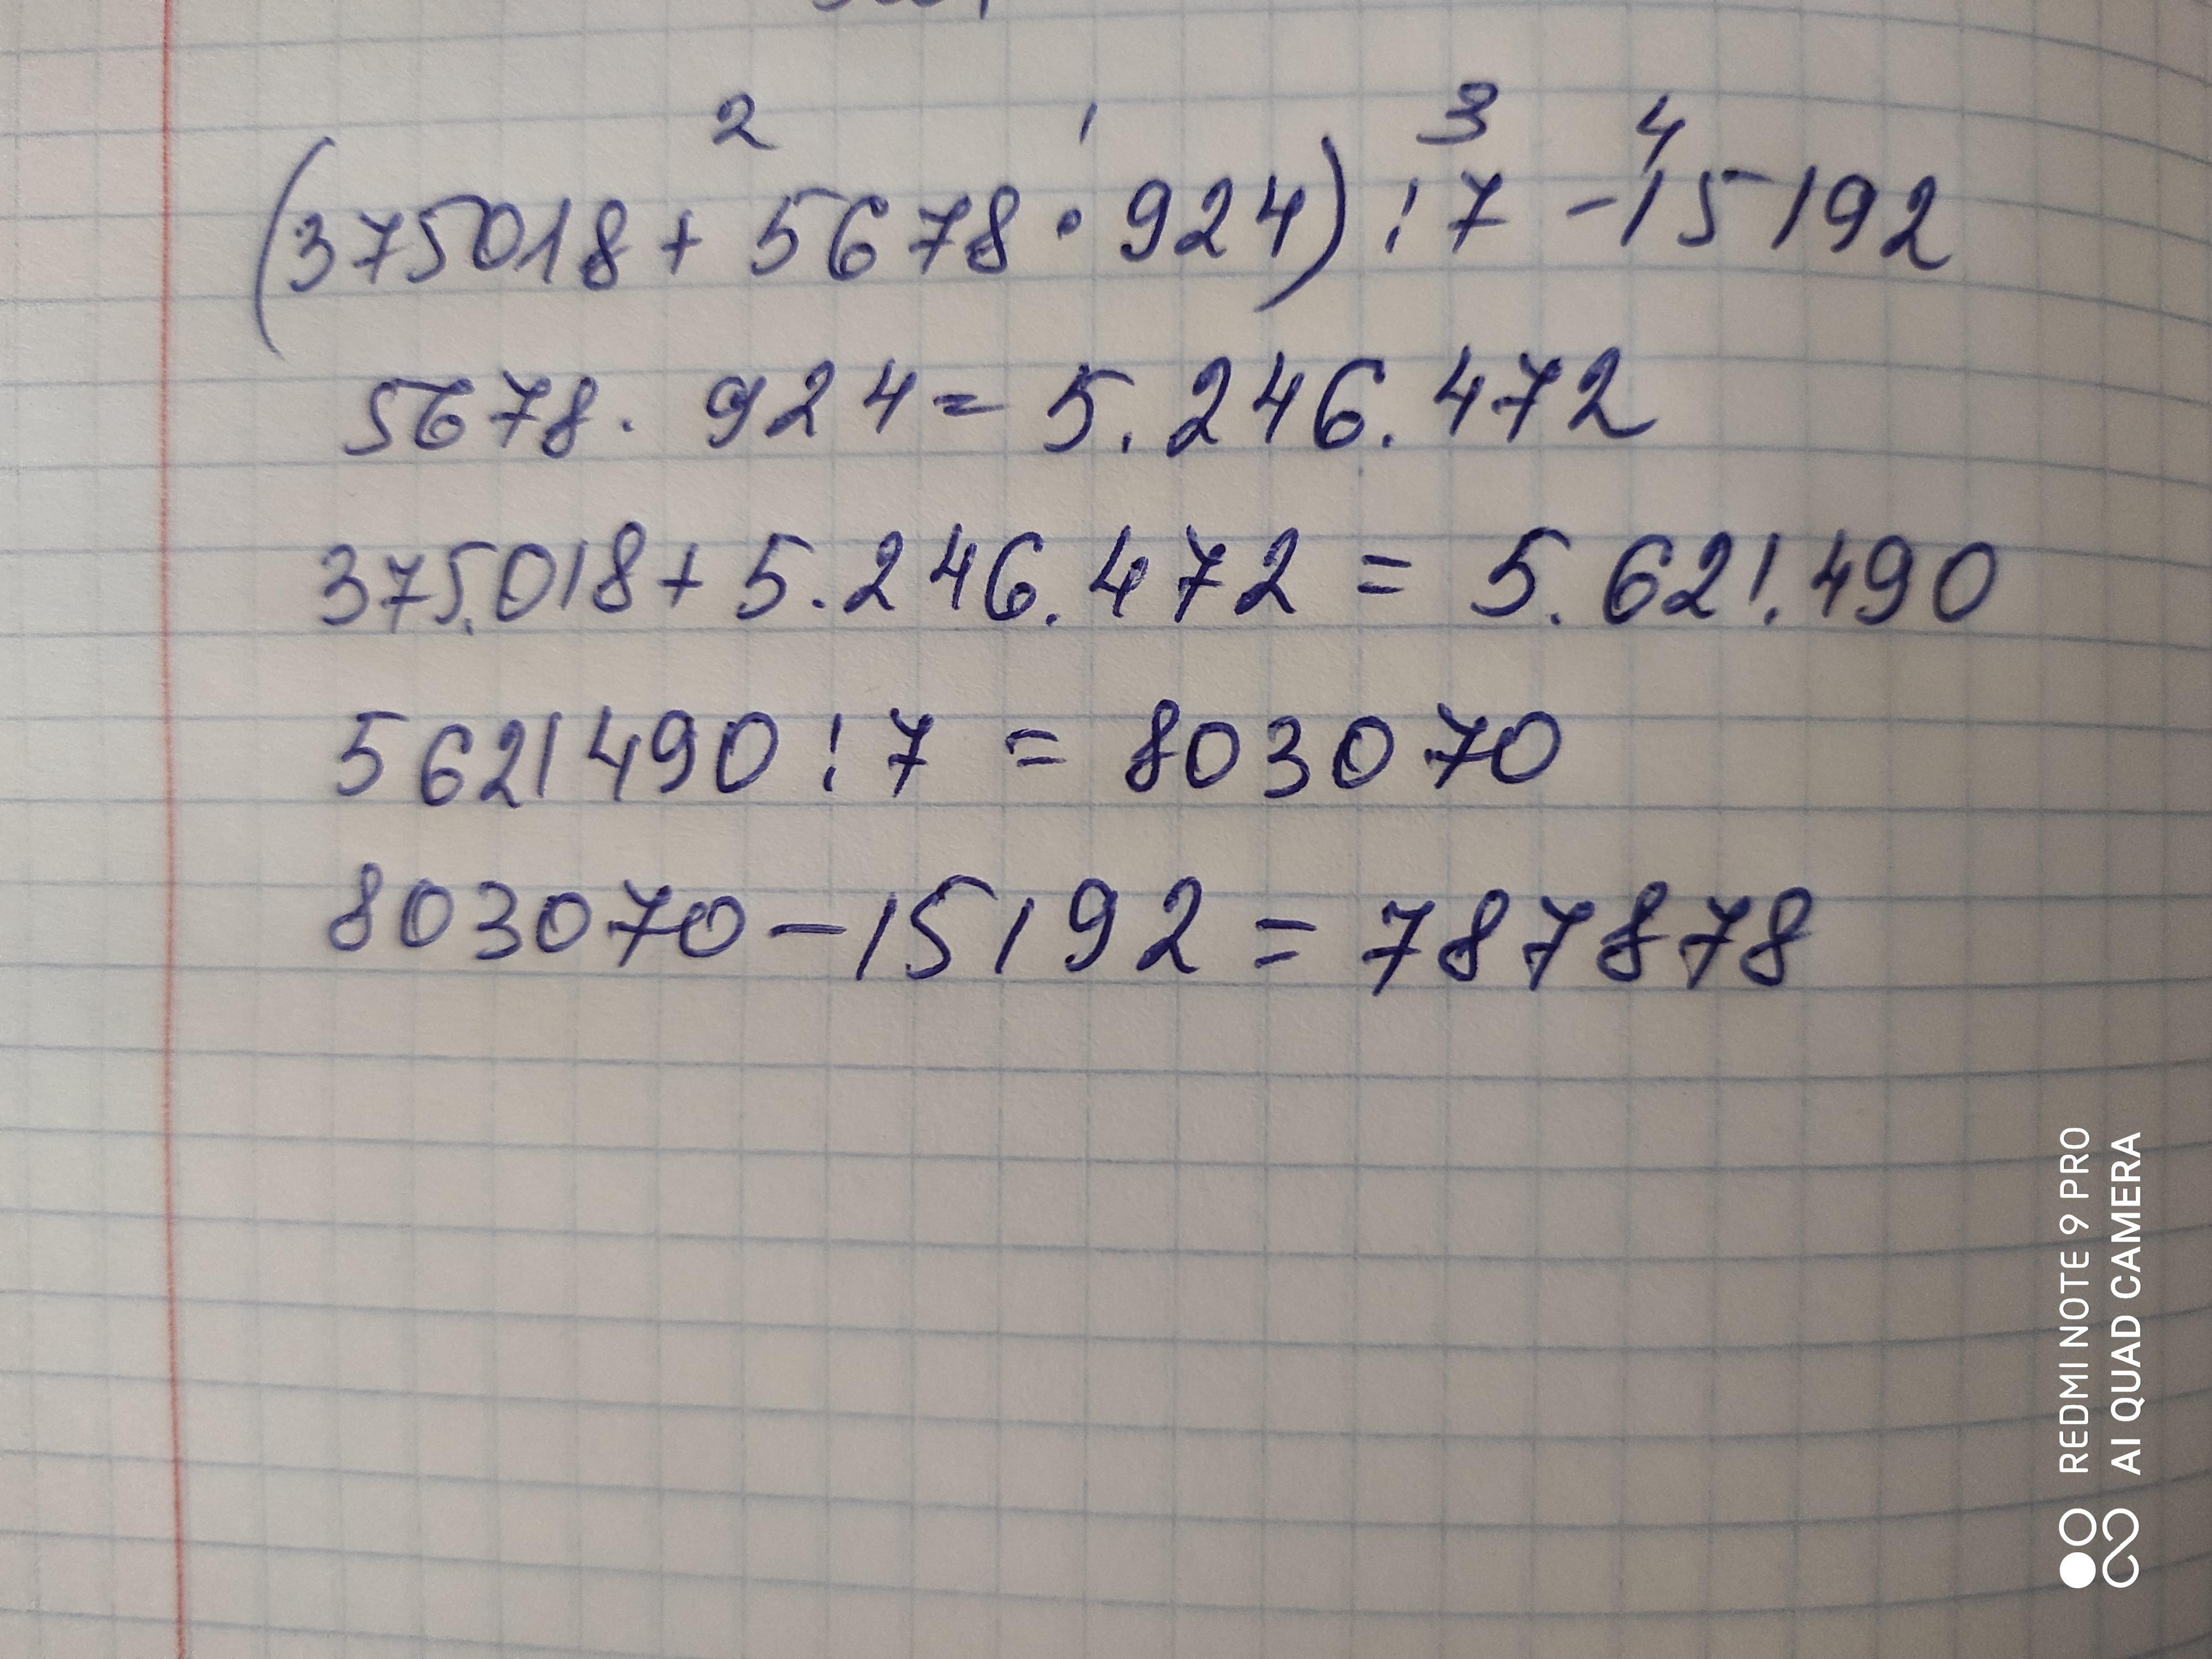 2 1 3 4
(375018 + 5678 · 924) : 7 - 15192
5678 · 924 = 5.246.472
375.018 + 5.246.472 = 5.621.490
5621490 : 7 = 803070
803070 - 15192 = 787878
REDMI NOTE 9 PRO
AI QUAD CAMERA